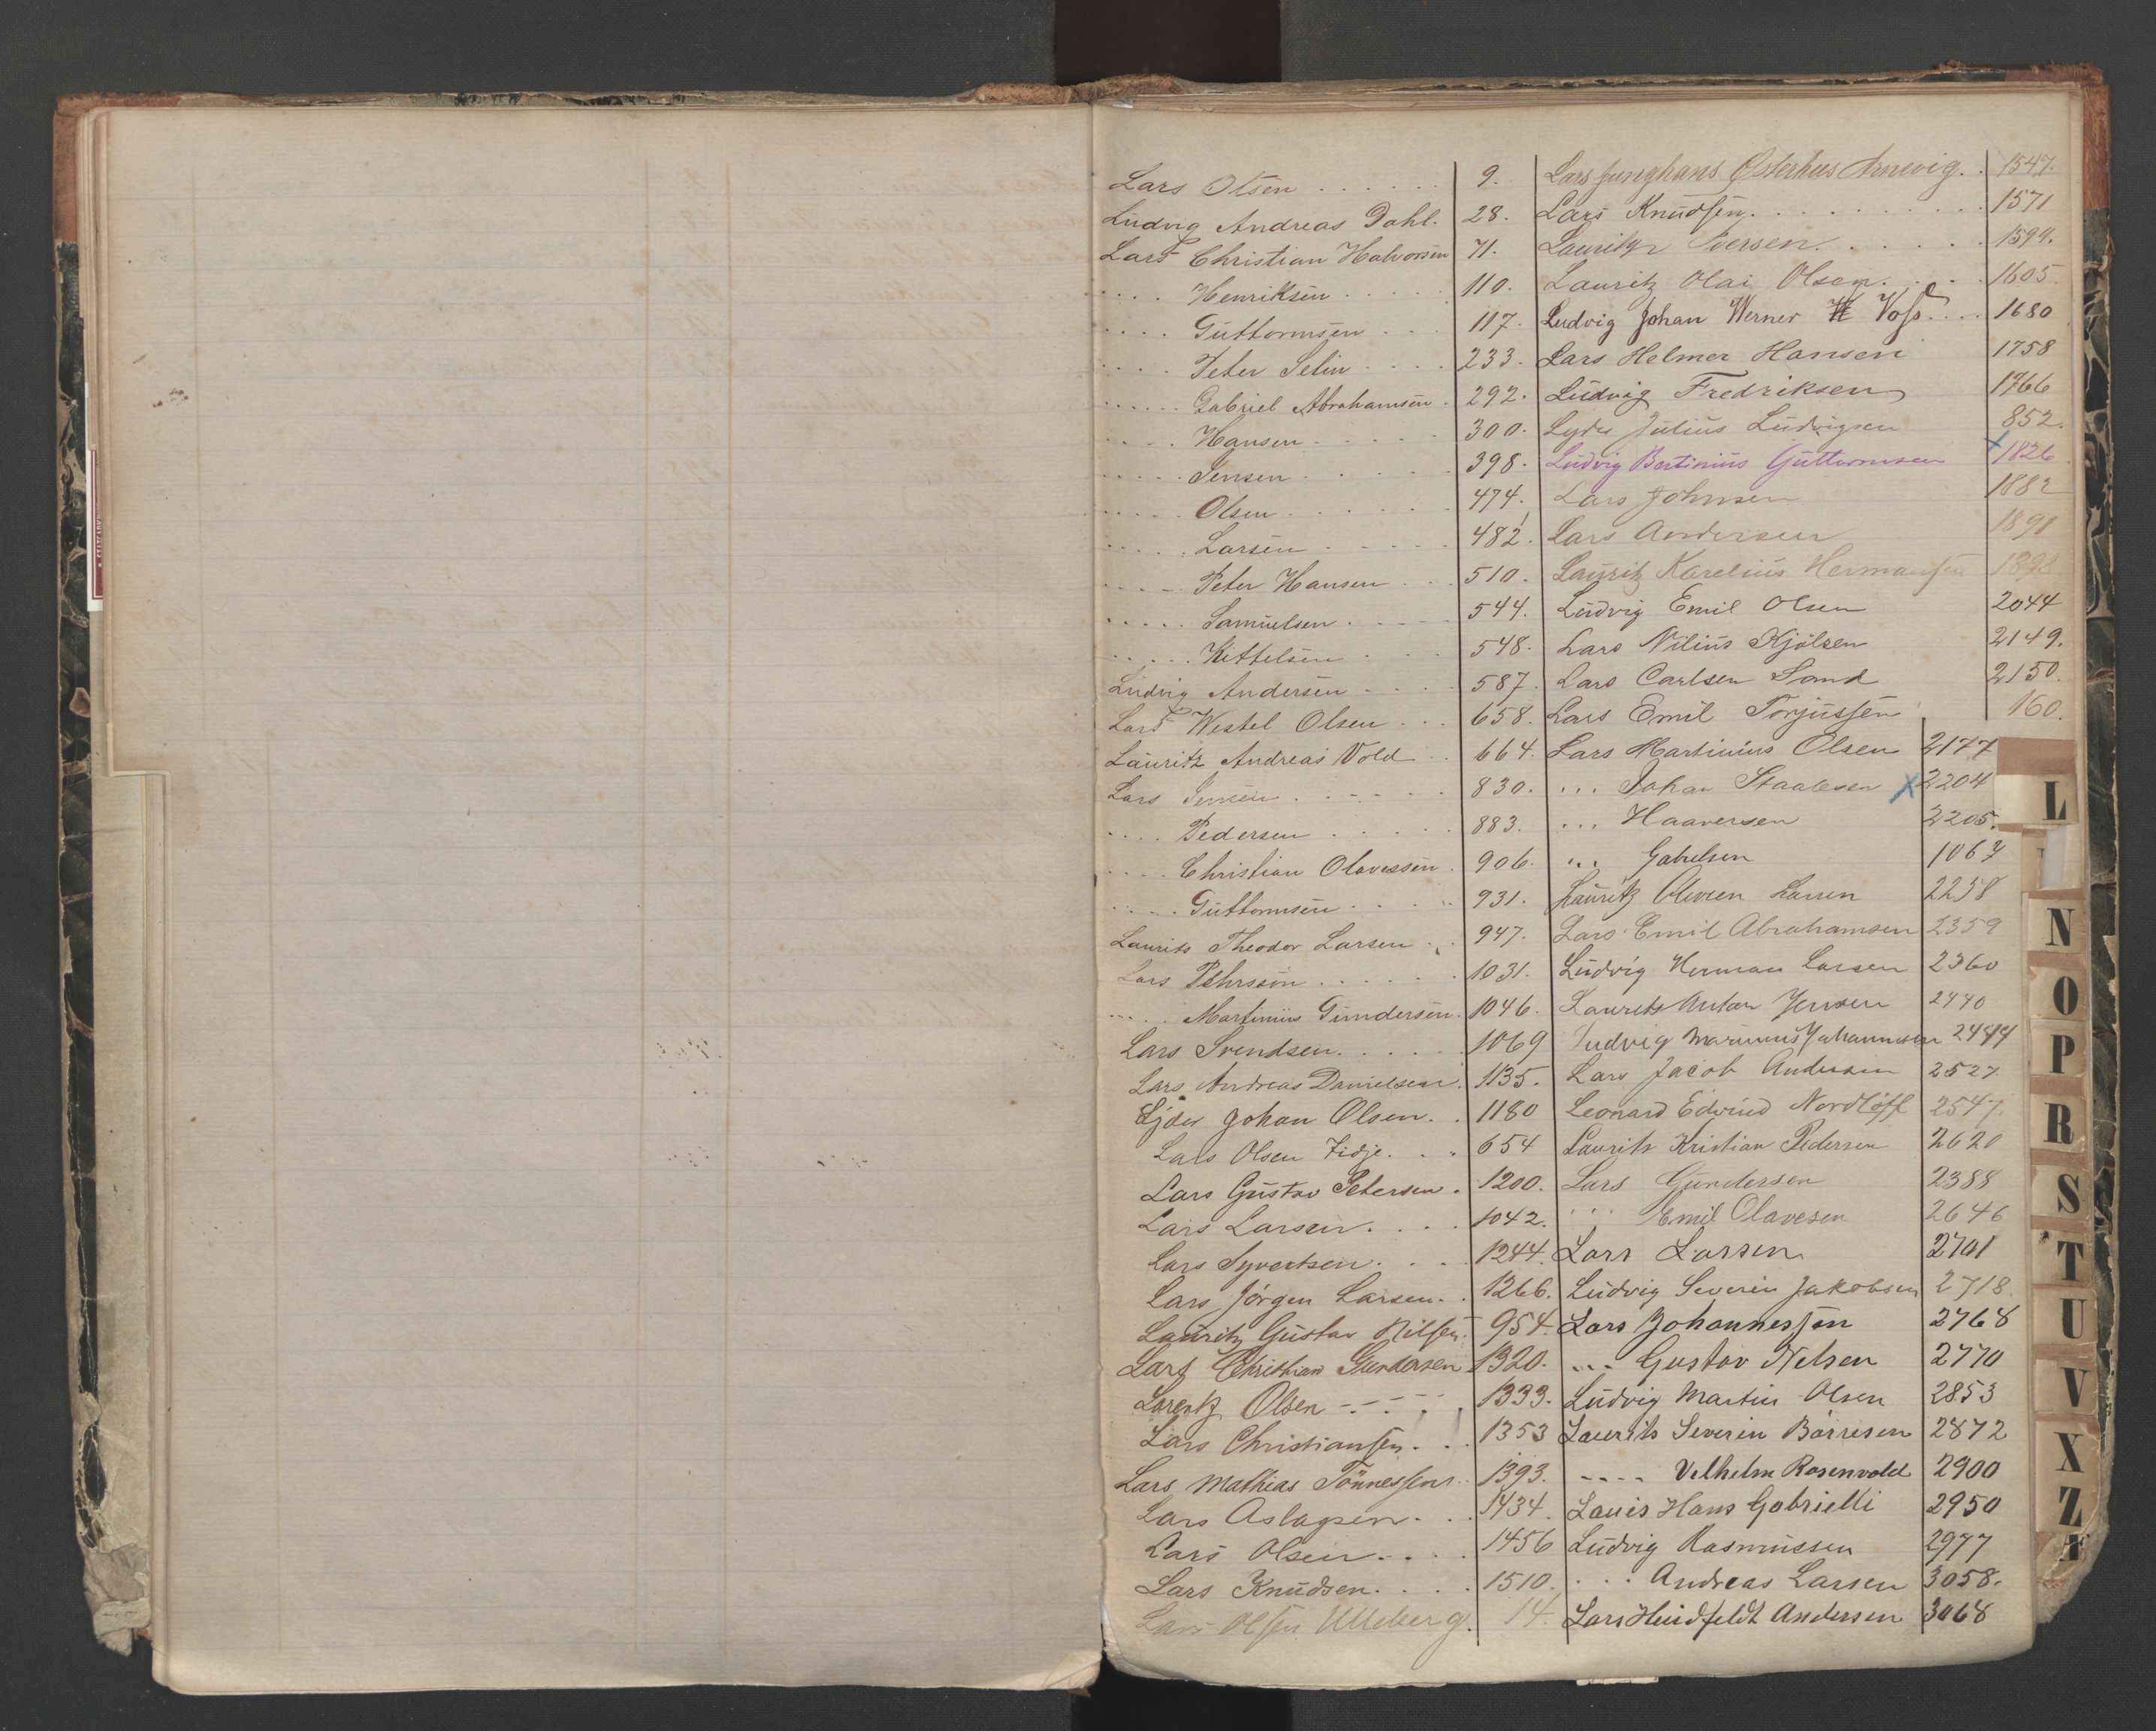 Lars Olsen . . . . . . 9.
Ludvig Andreas Dahl. 28.
Lars Christian Halvorsen 71.
. . . . Henriksen . . . . . 110.
. . . . Guttormsen . . . 117.
. . . . Peter Selin . . . . 233.
. . . . . Gabriel Abrahamsen . 292.
. . . . Hansen . . . . . 300.
. . . . . Jensen . . . . . . 398.
. . . . . Olsen . . . . . . 474.
. . . . . Larsen . . . . . 482.
. . . . Peter Hansen . . . 510.
. . . . . Samuelsen . . . . . 544.
. . . . . Kittelsen . . . . 548.
Ludvig Andersen . . . . 587.
Lars Westel Olsen . . . 658.
Lauritz Andreas Vold . . 664.
Lars Jensen . . . . . . 830.
. . . . Pedersen . . . . . 883.
. . . . Christian Olavessen . 906.
. . . . Guttormsen . . . . . 931.
Laurits Theodor Larsen . . 947.
Lars Pehrsson . . . . . . 1031.
. . . . Martinius Gundersen. 1046.
Lars Svendsen. . . . . . 1069
Lars Andreas Danielsen. 1135.
Ljder Johan Olsen. . 1180
Lars Olsen Tidje. . . 654
Lars Gustav Petersen . 1200.
Lars Larsen. . . . 1042.
Lars Syvertsen. . . . 1244.
Lars Jörgen Larsen. . 1266.
Lauritz Gustav Nilsen. 954.
Lars Christian Gundersen 1320.
Lorentz Olsen - - - - . 1333.
Lars Christiansen. . . 1353
Lars Mathias Tönnessen. . 1393.
Lars Aslagsen. . . 1434.
Lars Olsen. . . . 1456
Lars Knudsen. . . . 1510.
Lars Olsen Ulleberg. 14.
Lars Junghans Østerhus Arnevig. . 1547.
Lars Knudsen. . . . . . . . . . 1571
Lauritz Iversen. . . . . . . 1594.
Lauritz Olai Olsen. . . . . 1605
Ludvig Johan Werner Voss. . . . 1680
Lars Helmer Hansen 1758
Ludvig Fredriksen 1766
Lyder Julius Ludvigsen 852.
Ludvig Bertinius Guttormsen x 1826
Lars Johnsen 1882
Lars Andersen 1891
Lauritz Karelius Hermansen 1898
Ludvig Emil Olsen 2044
Lars Nilius Kjölsen 2149.
Lars Carlsen Sand 2150.
Lars Emil Torjussen 160.
Lars Martinius Olsen 2177
. . . Johan Staalesen x 2204
. . . Haaversen 2205.
. . . Gabrelsen 1067
Lauritz Olevsen Larsen 2258
Lars Emil Abrahamsen 2359
Ludvig Herman Larsen 2360
Laurits Anton Jensen 2440
Ludvig Marinius Johannesen 2444
Lars Jacob Andersen 2527.
Leonard Edvind Nordlöff 2547.
Laurits Kristian Pedersen 2620
Lars Gundersen 2388
. . . Emil Olavesen 2646
Lars Larsen 2701
Ludvig Severin Jakobsen 2718.
Lars Johannessen 2768
. . . Gustav Nelsen 2770
Ludvig Martin Olsen 2853
Laurits Severin Börresen 2872
- - - - Vilhelm Rosenvold 2900
Louis Hans Gabrielli 2950
Ludvig Rasmussen 2977
. . . Andreas Larsen 3058.
Lars Heidfeldt Andersen 3068
L
N
O
P
R
S
T
U
V
X
Z